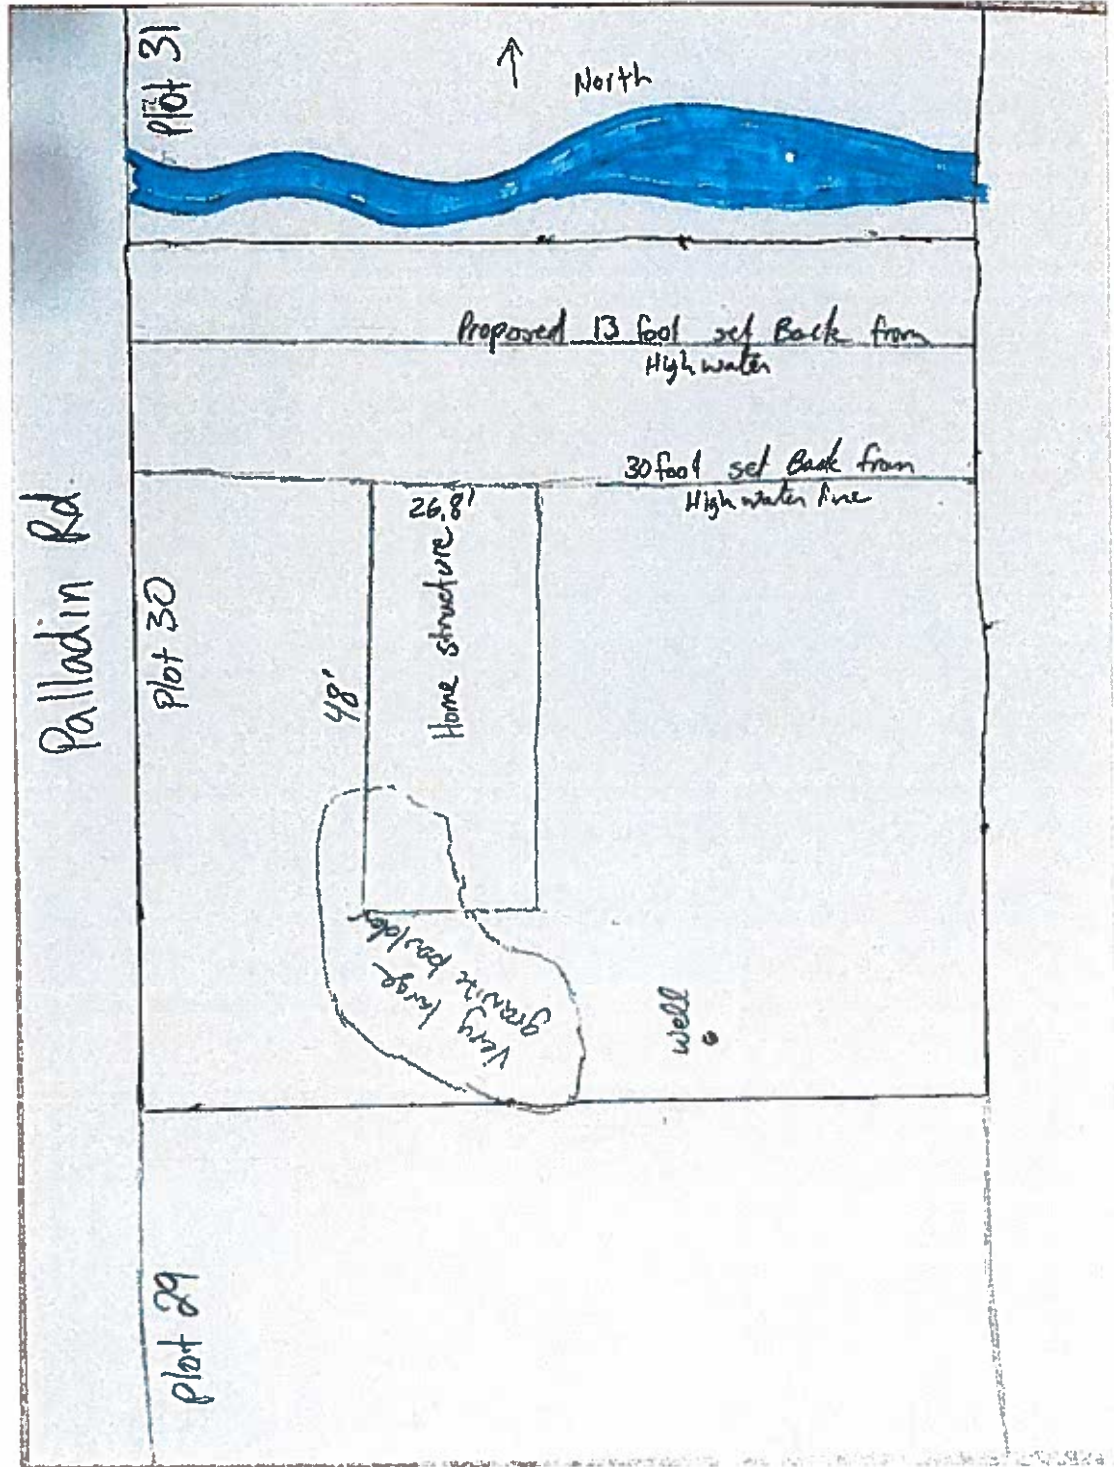 Plot 31
North
Proposed 13 foot set Back from
High water
30 foot set Back from
High water line
Palladin Rd.
Plot 30
26.8'
Home structure
48'
Very large
granite boulder
well
plot 29